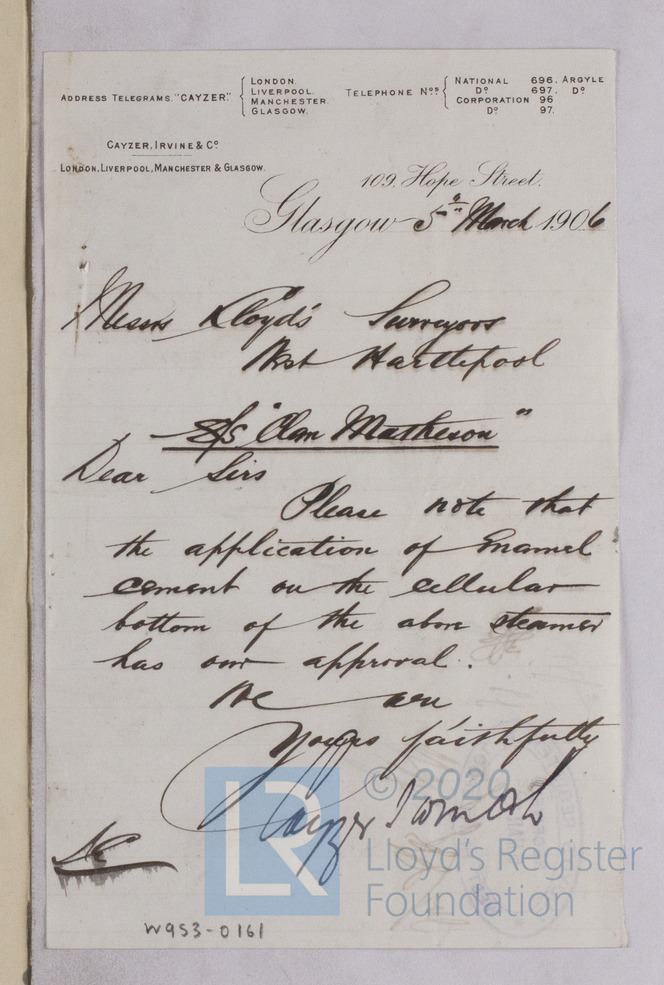 ADDRESS TELEGRAMS. "CAYZER." { LONDON. LIVERPOOL. MANCHESTER. GLASGOW.
TELEPHONE Nos. { NATIONAL 696. ARGYLE
Do 697. Do
CORPORATION 96
Do 97.
CAYZER, IRVINE & Co
LONDON, LIVERPOOL, MANCHESTER & GLASGOW.
109, Hope Street,
Glasgow 5th March 1906
Messrs Lloyd's Surveyors
West Hartlepool
S/S. "Clan Matheson"
Dear Sirs
Please note that
the application of Enamel
cement on the cellular
bottom of the above steamer
has our approval.
We are
Yours faithfully
Cayzer Irvine & Co
© 2020
LR
Lloyd's Register
Foundation
W953-0161